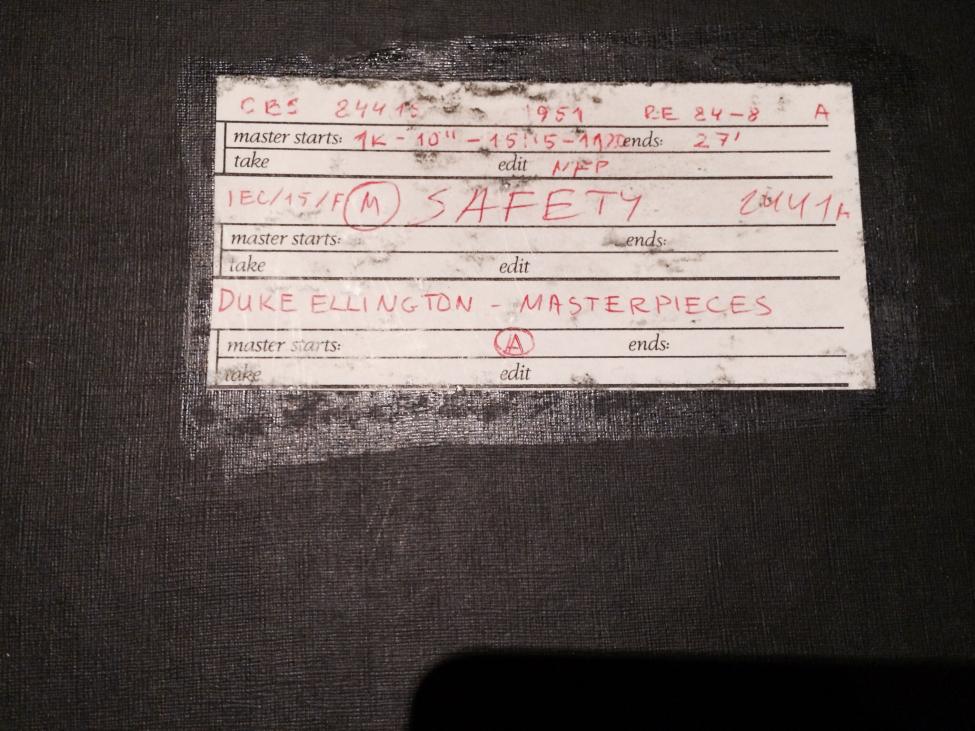 CBS 24415 1951 RE 84-8 A
master starts: 1K - 10" - 15:15 ends: 27'
take edit NFP
IEC/15/F M SAFETY
master starts: ends:
take edit
DUKE ELLINGTON - MASTERPIECES
master starts: A ends:
take edit